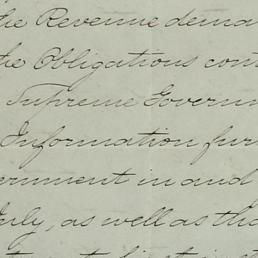 the Revenue dema
the Obligations con
Supreme Governm
Information fur
ernment in and
July, as well as tha